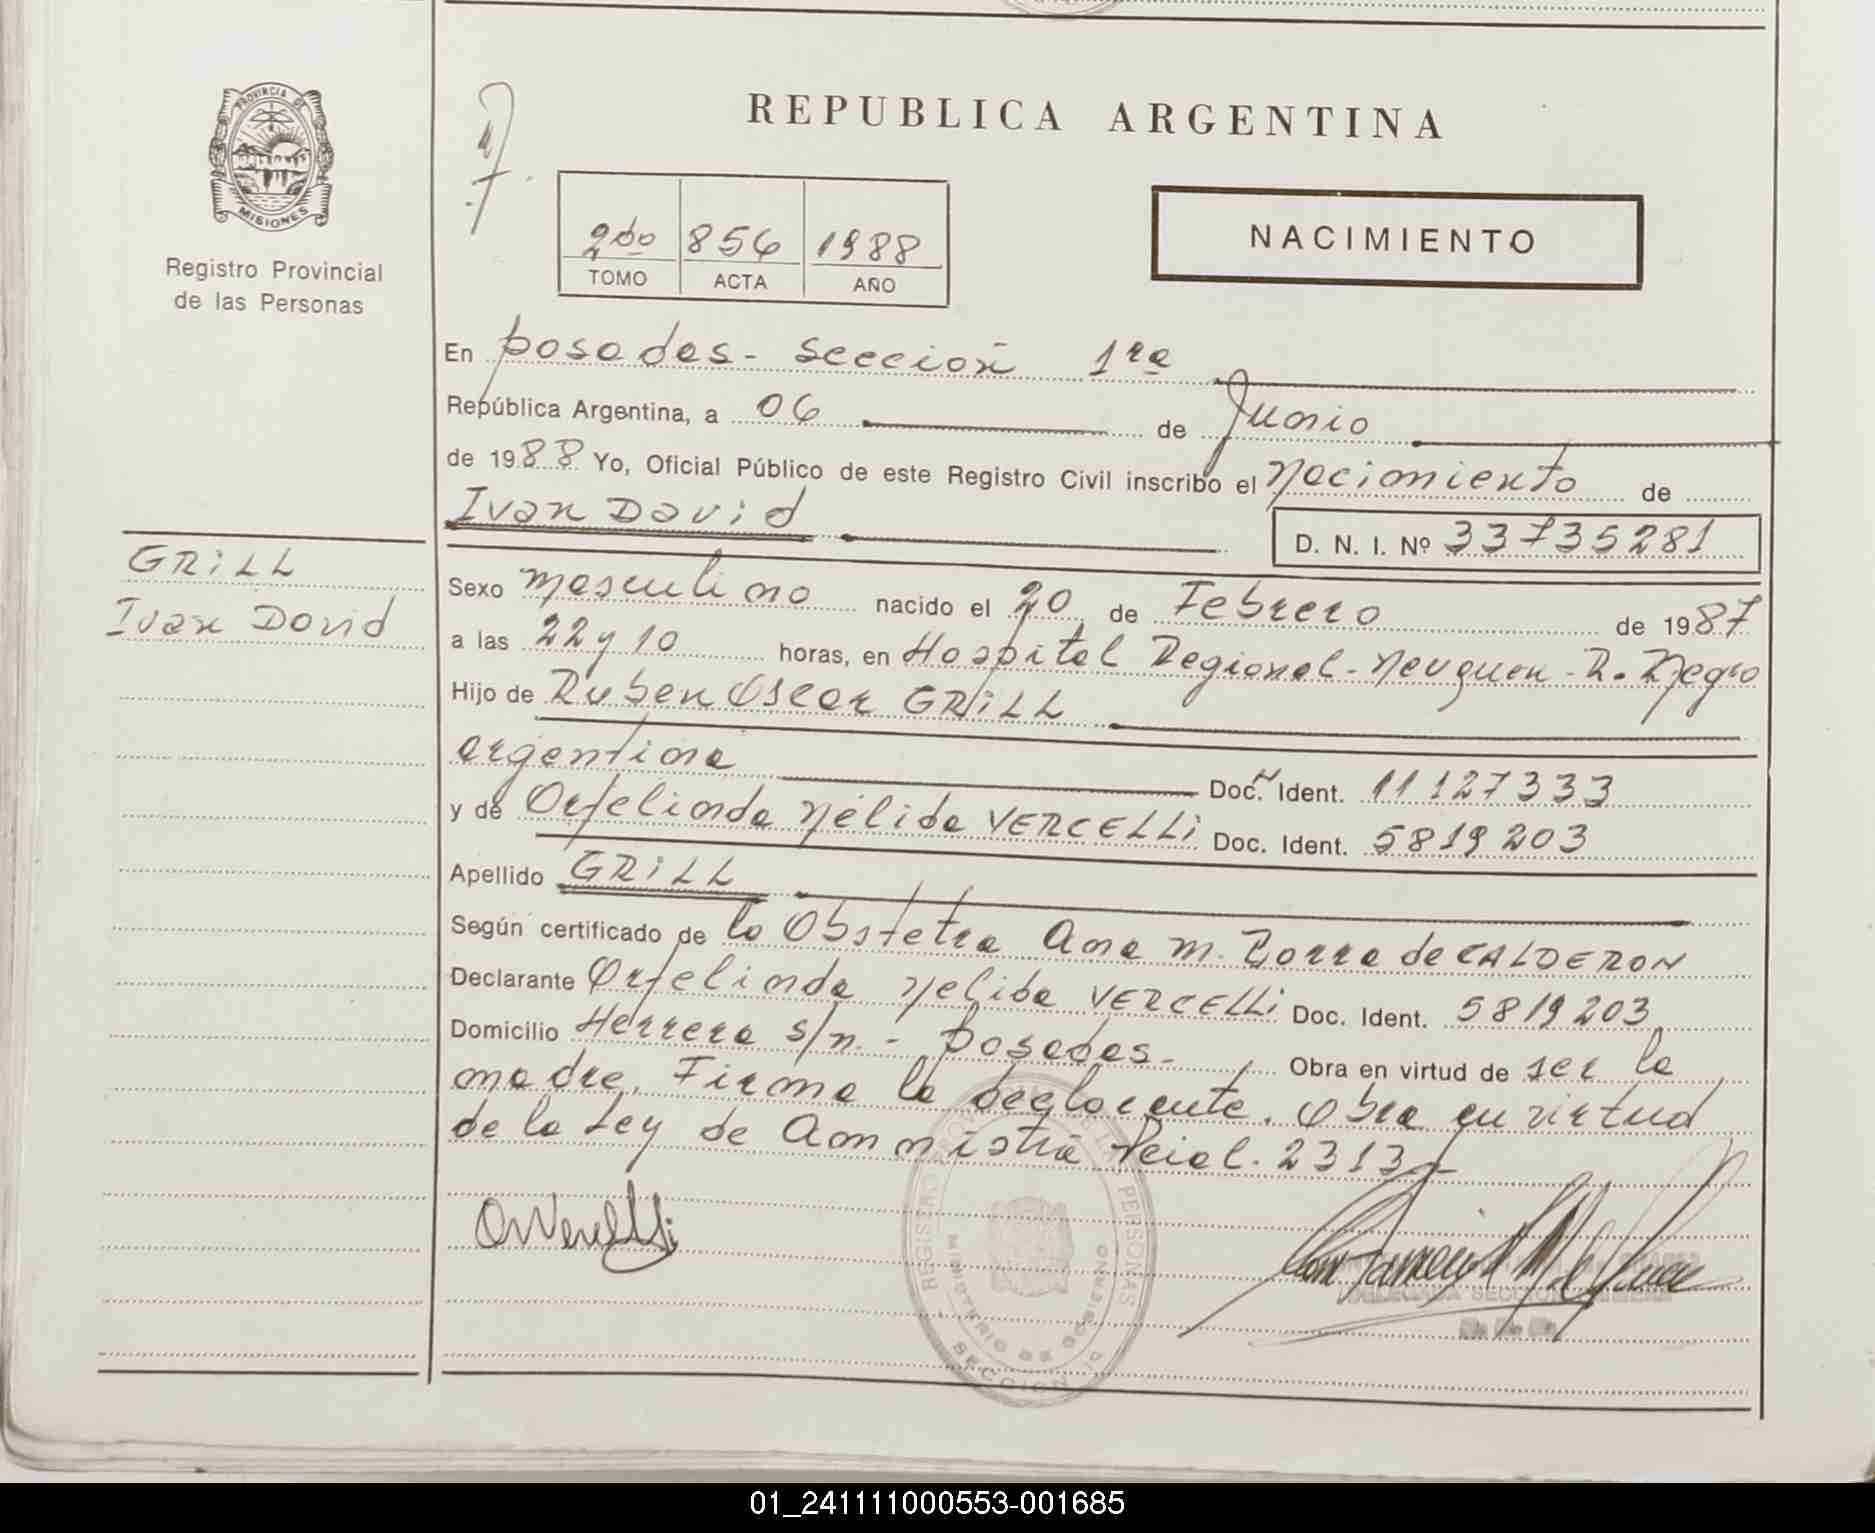 PROVINCIA DE
MISIONES
Registro Provincial
de las Personas
GRiLL
Ivan David
REPUBLICA ARGENTINA
2do 856 1988
TOMO ACTA AÑO
NACIMIENTO
En posadas - sección 1ra
República Argentina, a 06 de Junio
de 1988 Yo, Oficial Público de este Registro Civil inscribo el Nacimiento de
Ivan David
D. N. I. Nº 33735281
Sexo masculino nacido el 20 de Febrero de 1987
a las 22 y 10 horas, en Hospital Regional - Neuquen - R. Negro
Hijo de Ruben Oscar GRiLL
argentina Doc. Ident. 11127333
y de Orfelinda Nélida VERCELLi Doc. Ident. 5819203
Apellido GRiLL
Según certificado de la Obstetra Ana M. de CALDERON
Declarante Orfelinda Nelida VERCELLi Doc. Ident. 5819203
Domicilio Herrera s/n. - Posadas - Obra en virtud de ser la
madre. Firma la declarante. Obra en virtud
de la Ley de Amnistia Pcial. 2313
REGISTRO DE LAS PERSONAS
MINISTERIO DE GOBIERNO
SECCION 1a
DELEGADA SECCION
01_241111000553-001685